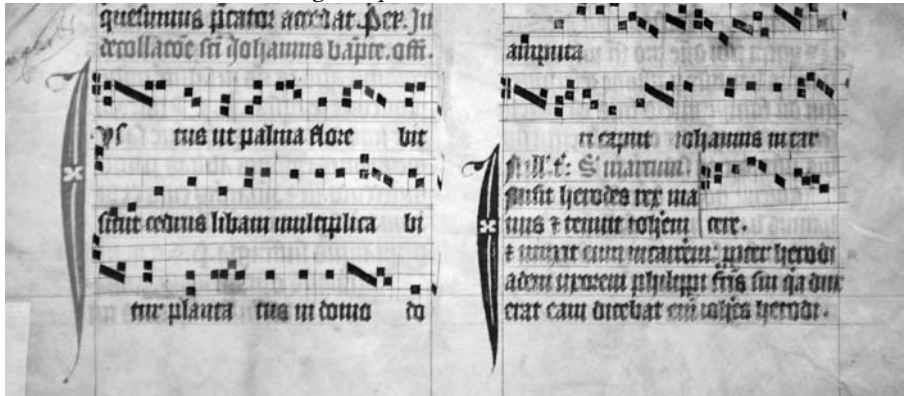 quesumus p̄cator accedat. Per. In
decollacōe sc̄i Johannis bapt̄e. offi.
Iustus ut palma flore bit
sicut cedrus libani multiplica bi
tur planta tus in domo do
amputa
ri caput iohannis in car
S martinus
Misit herodes rex ma
nus ⁊ tenuit ioh̄em cere.
⁊ uinxit eum in carc̄em ꝓpter herodi
adem uxorem philippi fr̄is sui q̄a dux
erat eam dicebat eni ioh̄es herodi.